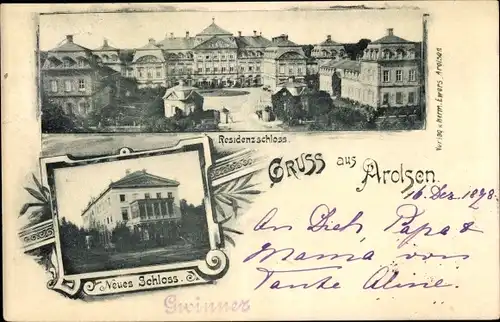 Residenzschloss.
Verlag v. Herm. Ewers Arolsen
GRUSS aus Arolsen.
16 Dez. 1898.
An Dich Papa &
Mama von
Tante Aline.
Neues Schloss.
Gwinner